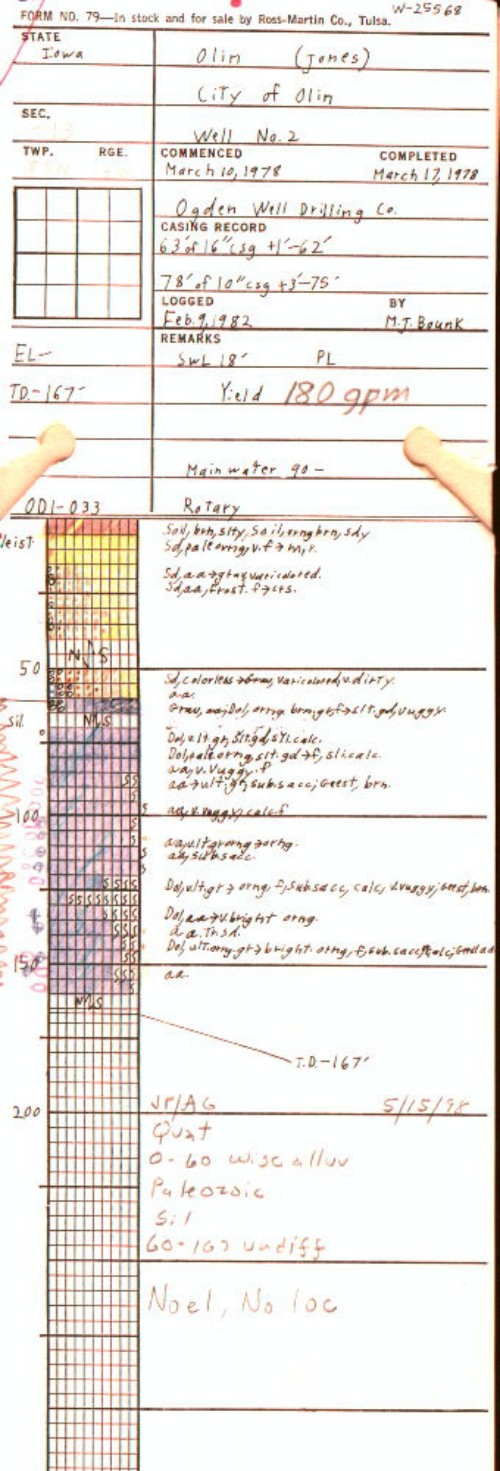 W-25568
FORM NO. 79—In stock and for sale by Ross-Martin Co., Tulsa.
STATE
Iowa
Olin (Jones)
City of Olin
SEC.
Well No. 2
TWP. RGE.
COMMENCED COMPLETED
March 10, 1978 March 17, 1978
Ogden Well Drilling Co.
CASING RECORD
63' of 16" csg +1'-62'
78' of 10" csg +3'-75'
LOGGED BY
Feb. 9, 1982 M.J. Bounk
REMARKS
EL- SWL 18' PL
TD.-167' Yield 180 gpm
Main water 90-
ODI-033 Rotary
Pleist Soil, brn, slty, Soil, orng brn, sdy
Sd, pale orng, v.f→m, r.
Sd, aa→gray varicolored.
Sd, aa, frost. f→crs.
NS
50 Sd, colorless→Grav, varicolored, v. dirty.
aa.
Grav, aa; Dol, orng brn, gr, f→slt. gd, vuggy.
Sil. NS
Dol, v lt gr, slt. gd, sli. calc.
Dol, pale orng, slt. gd→f, sli calc.
aa, v. vuggy. f
aa→v lt. gr, sub. sacc; Geest, brn.
100 aa, v. vuggy, calc. f
aa, v. lt gr orng→orng.
aa, sub. sacc.
Dol, v lt. gr→orng, f, sub. sacc, calc, v. vuggy; Geest, brn.
Dol, aa→v. bright orng.
aa. Tr. sh.
150 Dol, v lt. orng. gr→bright. orng, f, sub. sacc, calc; Geest aa
aa.
NS
T.D.-167'
200 VF/AG 5/15/98
Quat
0-60 wisc alluv
Paleozoic
Sil
60-167 undiff
Noel, No loc